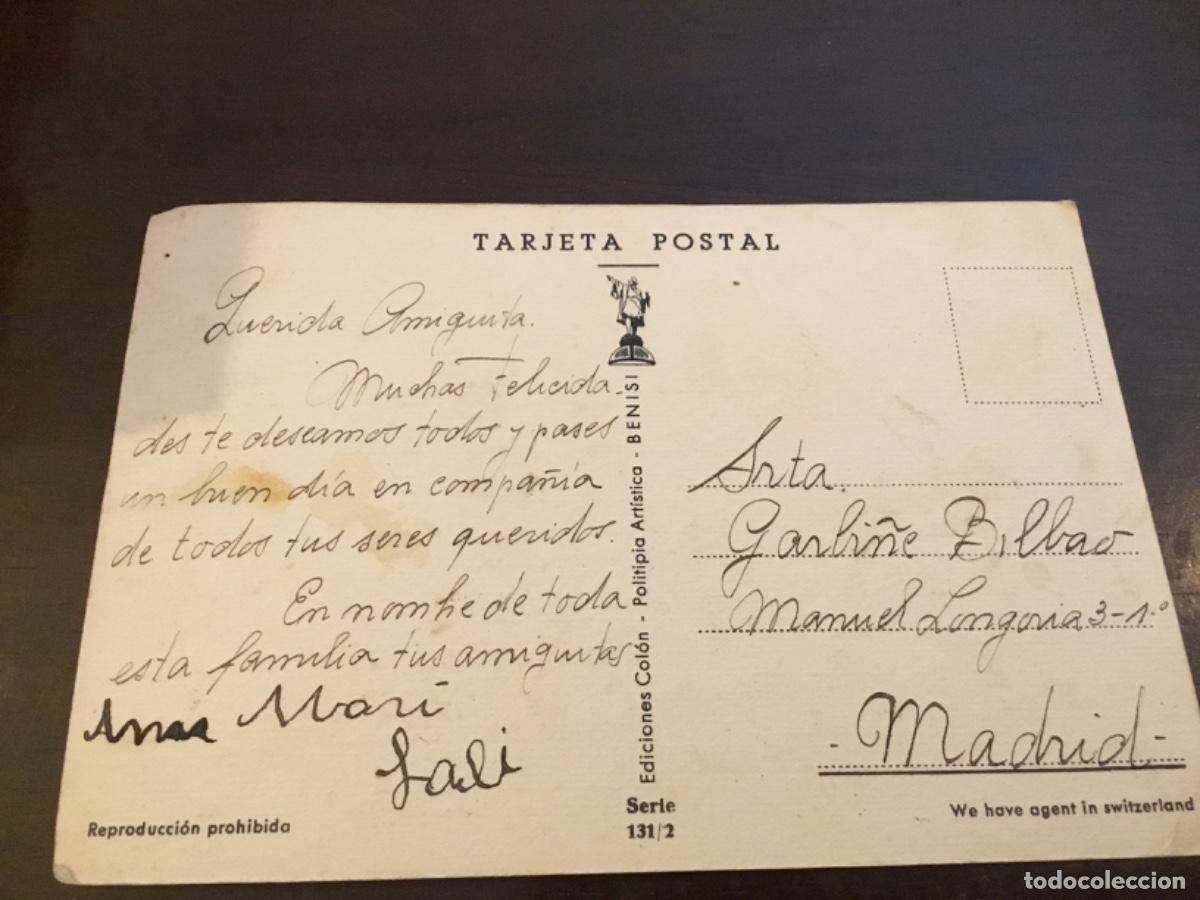 TARJETA POSTAL
Querida Amiguita.
Muchas felicida-
des te deseamos todos y pases
un buen día en compañia
de todos tus seres queridos.
En nombre de toda
esta familia tus amiguitas
Ana Mari
Lali
Reproducción prohibida
Ediciones Colón - Politipia Artística - BENISI
Serie
131/2
Srta.
Garbiñe Bilbao
Manuel Longoria 3-1º
- Madrid -
We have agent in switzerland
todocoleccion